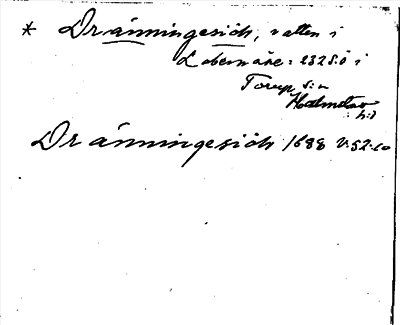 * Dränningesiöh, vatten i
Labernäre: 232 S:ö i
Torup s:n
Halmstad
h:d
Dränningesiöh 1688 V:52:10